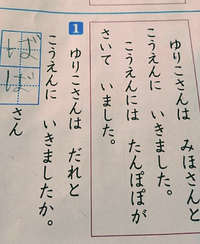 ゆりこさんは　みほさんと
こうえんに　いきました。
こうえんには　たんぽぽが
さいて　いました。
1
ゆりこさんは　だれと
こうえんに　いきましたか。
さん